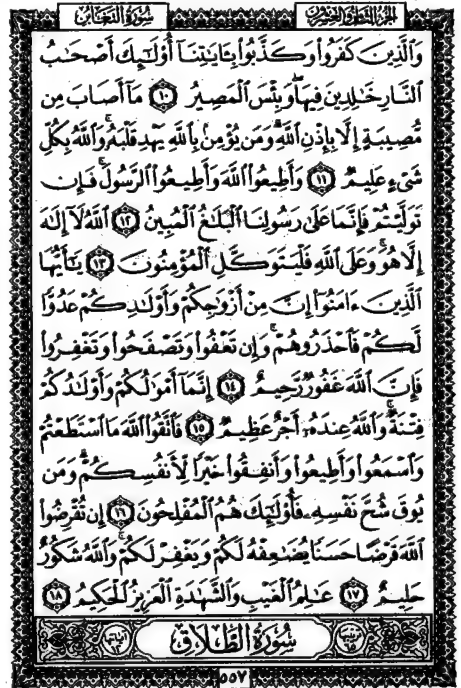 سورة التغابن
الجزء الثامن والعشرون
وَالَّذِينَ كَفَرُوا۟ وَكَذَّبُوا۟ بِـَٔايَـٰتِنَآ أُو۟لَـٰٓئِكَ أَصْحَـٰبُ
ٱلنَّارِ خَـٰلِدِينَ فِيهَا ۖ وَبِئْسَ ٱلْمَصِيرُ ١٠ مَآ أَصَابَ مِن
مُّصِيبَةٍ إِلَّا بِإِذْنِ ٱللَّهِ ۗ وَمَن يُؤْمِنۢ بِٱللَّهِ يَهْدِ قَلْبَهُۥ ۚ وَٱللَّهُ بِكُلِّ
شَىْءٍ عَلِيمٌ ١١ وَأَطِيعُوا۟ ٱللَّهَ وَأَطِيعُوا۟ ٱلرَّسُولَ ۚ فَإِن
تَوَلَّيْتُمْ فَإِنَّمَا عَلَىٰ رَسُولِنَا ٱلْبَلَـٰغُ ٱلْمُبِينُ ١٢ ٱللَّهُ لَآ إِلَـٰهَ
إِلَّا هُوَ ۚ وَعَلَى ٱللَّهِ فَلْيَتَوَكَّلِ ٱلْمُؤْمِنُونَ ١٣ يَـٰٓأَيُّهَا
ٱلَّذِينَ ءَامَنُوٓا۟ إِنَّ مِنْ أَزْوَٰجِكُمْ وَأَوْلَـٰدِكُمْ عَدُوًّا
لَّكُمْ فَٱحْذَرُوهُمْ ۚ وَإِن تَعْفُوا۟ وَتَصْفَحُوا۟ وَتَغْفِرُوا۟
فَإِنَّ ٱللَّهَ غَفُورٌ رَّحِيمٌ ١٤ إِنَّمَآ أَمْوَٰلُكُمْ وَأَوْلَـٰدُكُمْ
فِتْنَةٌ ۚ وَٱللَّهُ عِندَهُۥٓ أَجْرٌ عَظِيمٌ ١٥ فَٱتَّقُوا۟ ٱللَّهَ مَا ٱسْتَطَعْتُمْ
وَٱسْمَعُوا۟ وَأَطِيعُوا۟ وَأَنفِقُوا۟ خَيْرًا لِّأَنفُسِكُمْ ۗ وَمَن
يُوقَ شُحَّ نَفْسِهِۦ فَأُو۟لَـٰٓئِكَ هُمُ ٱلْمُفْلِحُونَ ١٦ إِن تُقْرِضُوا۟
ٱللَّهَ قَرْضًا حَسَنًا يُضَـٰعِفْهُ لَكُمْ وَيَغْفِرْ لَكُمْ ۚ وَٱللَّهُ شَكُورٌ
حَلِيمٌ ١٧ عَـٰلِمُ ٱلْغَيْبِ وَٱلشَّهَـٰدَةِ ٱلْعَزِيزُ ٱلْحَكِيمُ ١٨
سُورَةُ الطَّلَاقِ
٥٥٧